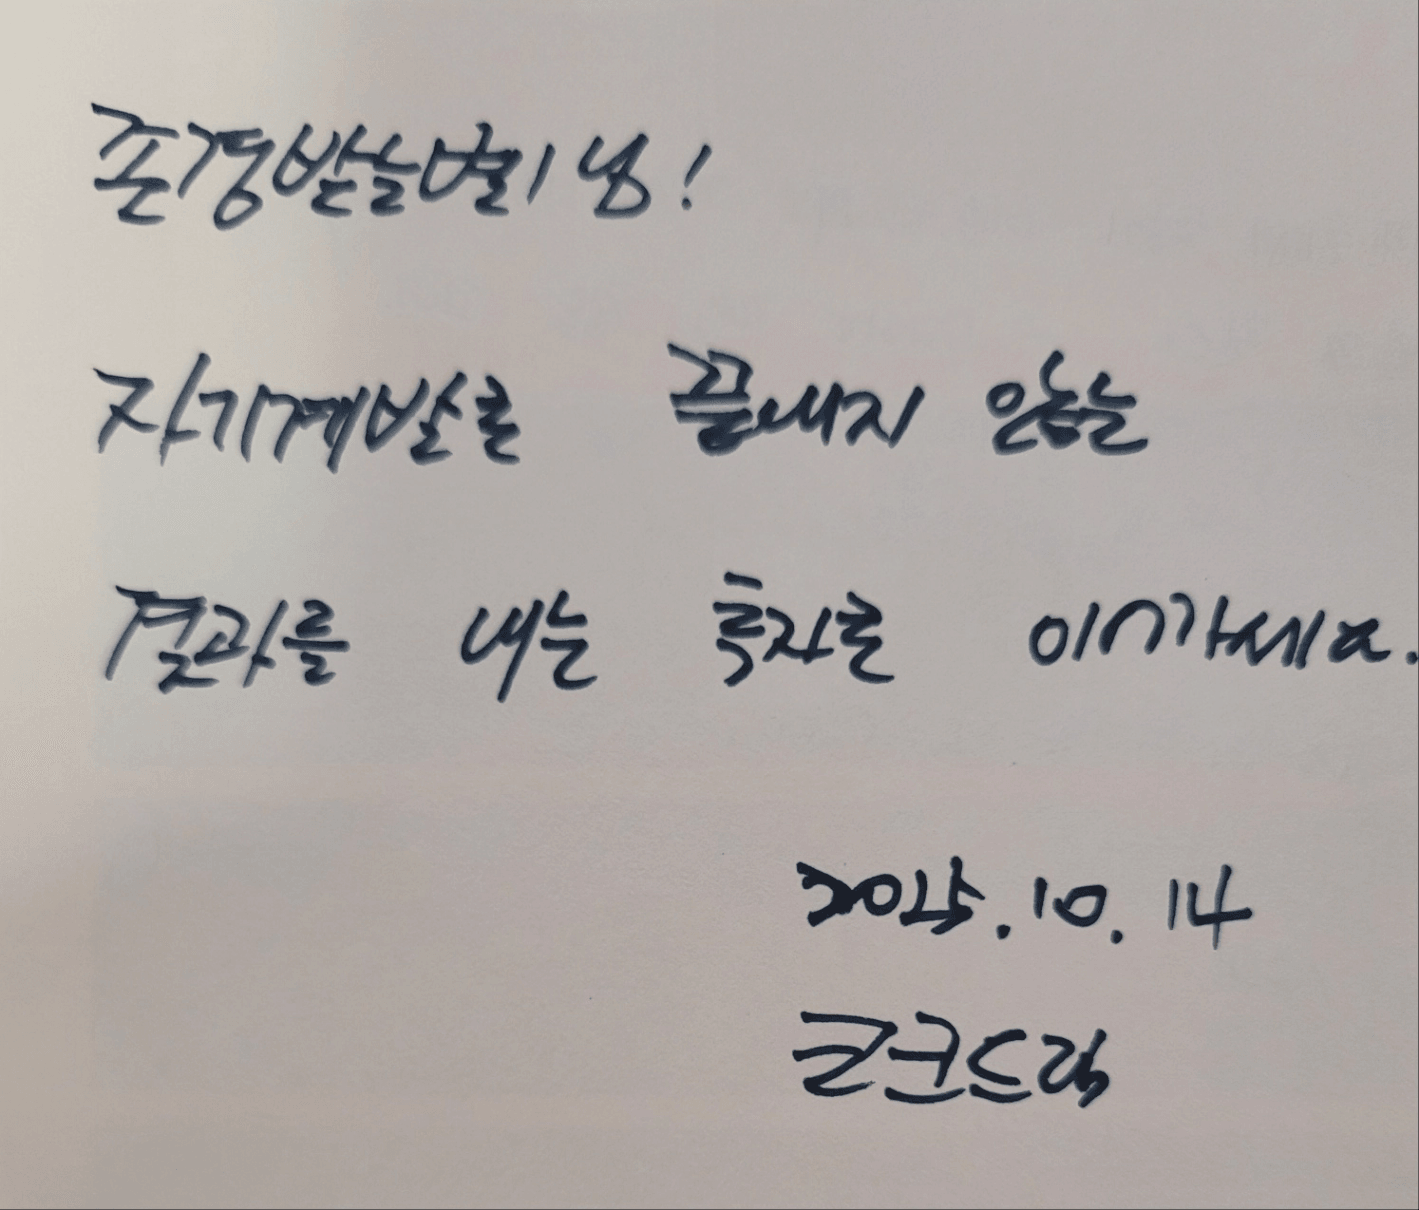 존경받는별이님!
자기계발로 끝내지 않는
결과를 내는 투자로 이어가세요.
2025.10.14